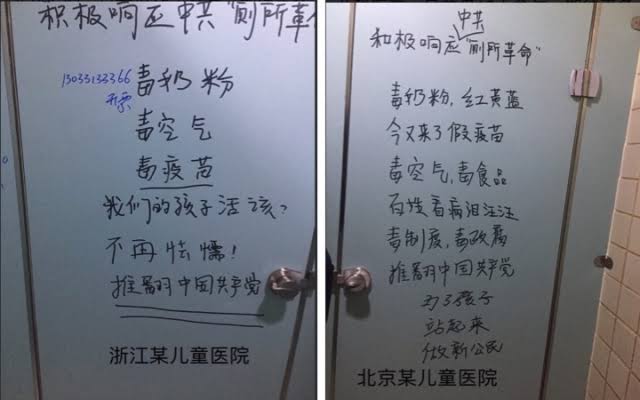 积极响应中共"厕所革命
13033133366
开票
毒奶粉
毒空气
毒疫苗
我们的孩子活该?
不再怯懦!
推翻中国共产党
浙江某儿童医院
中共
积极响应"厕所革命"
毒奶粉,红黄蓝
今又来了假疫苗
毒空气,毒食品
百姓看病泪汪汪
毒制度,毒政腐
推翻中国共产党
为了孩子
站起来
做新公民
北京某儿童医院